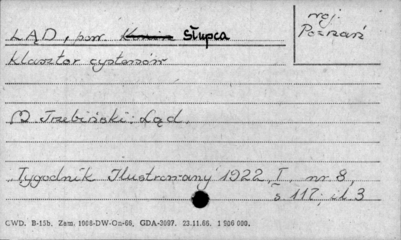 LĄD, pow. Konin Słupca
woj.
Poznań
klasztor cystersów
M. Trzebiński: Ląd.
Tygodnik Ilustrowany 1922, I, nr 8,
s. 117, il. 3
CWD. B-15b. Zam. 1006-DW-On-66, GDA-3097. 23.11.66. 1 500 000.